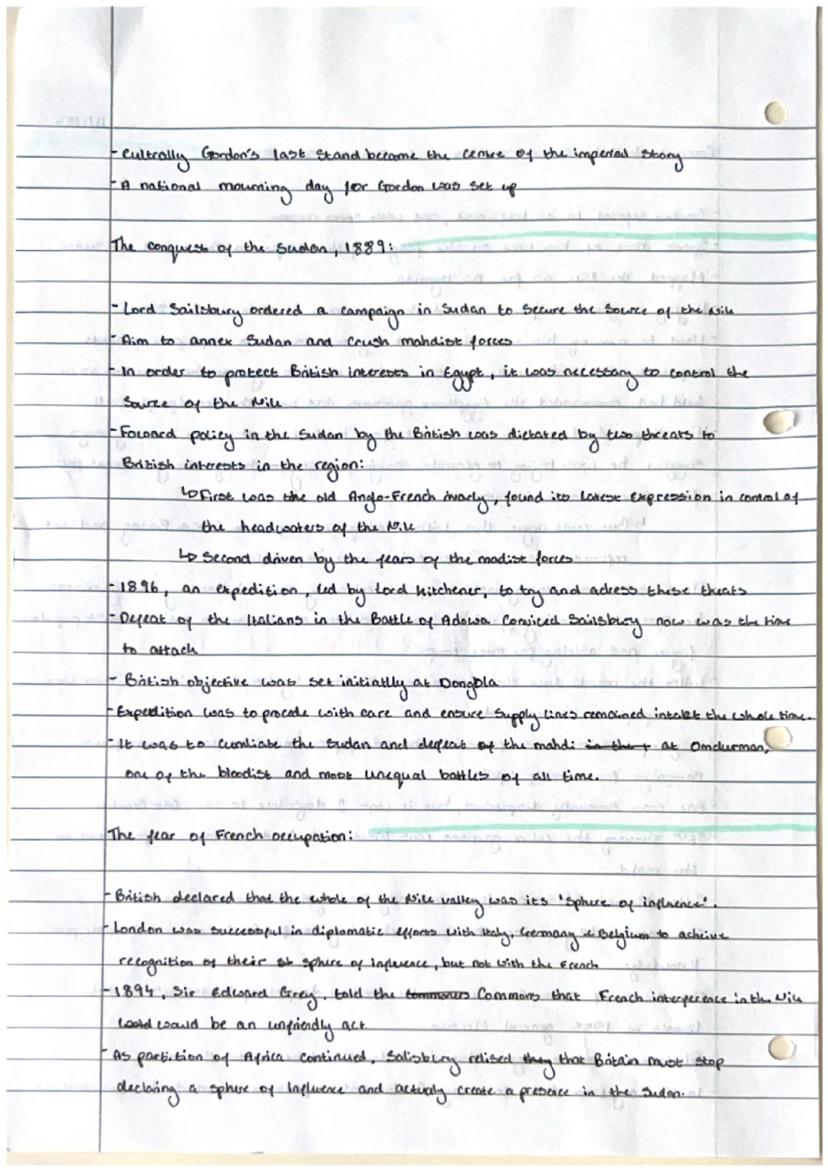 - Cultrally Gordon's last stand became the centre of the imperial story
- A national mourning day for Gordon was set up
The conquest of the Sudan, 1889:
- Lord Sailsbury ordered a campaign in Sudan to secure the source of the Nile
- Aim to annex Sudan and crush mahdist forces
- In order to protect British interests in Egypt, it was necessary to control the
source of the Nile
- Foward policy in the Sudan by the British was dictated by two threats to
British interests in the region:
↳ First was the old Anglo-French rivarly, found its latest expression in control of
the headwaters of the Nile
↳ Second driven by the fears of the madist forces
- 1896, an expedition, led by Lord Kitchener, to try and adress these threats
- Defeat of the Italians in the Battle of Adowa conviced Sailsbury now was the time
to attack
- British objective was set initiatlly at Dongola
- Expedition was to procede with care and ensure supply lines remained intact the whole time.
- It was to the Sudan and defeat of the mahdi in the at Omdurman,
one of the bloodist and most unequal battles of all time.
The fear of French occupation:
- British declared that the whole of the Nile valley was its 'sphere of influence'.
- London was successful in diplomatic efforts with Italy, Germany & Belgium to acheive
recognition of their sphere of influence, but not with the French
- 1894, Sir Edward Grey, told the commons Commons that French interference in the Nile
would be an unfriendly act
- As partition of Africa continued, Salisbury relised they that Britain must stop
declaring a sphere of influence and actualy create a presence in the Sudan.